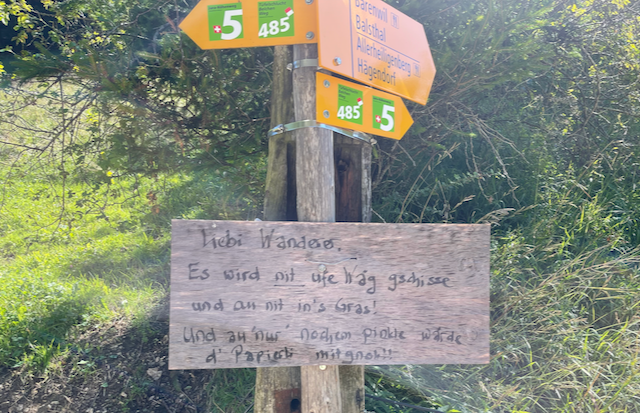 5
485
Bärenwil
Balsthal
Allerheiligenberg
Hägendorf
485
5
Liebi Wanderer,
Es wird nit ufe Wäg gschisse
und au nit in's Gras!
Und au "nur" nochem pinkle wärde
d' Papierli mitgnoh!!